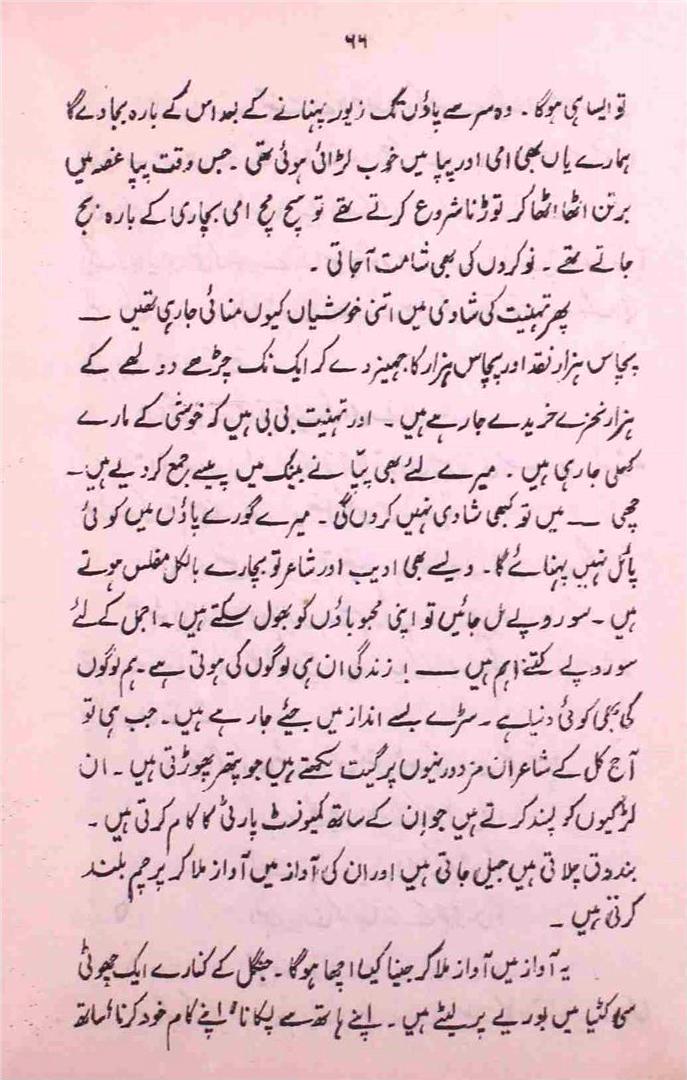 ۶۶
تو ایسا ہی ہوگا ۔ وہ سر سے پاؤں تک زیور پہنانے کے بعد اس کے بارہ بجا دے گا
ہمارے یاں بھی امی اور پپا میں خوب لڑائی ہوئی تھی ۔ جس وقت پپا غصہ میں
برتن اٹھا اٹھا کر توڑنا شروع کرتے تھے تو سچ مچ امی بچاری کے بارہ بج
جاتے تھے ۔ نوکروں کی بھی شامت آجاتی ۔
پھر تہنیت کی شادی میں اتنی خوشیاں کیوں منائی جارہی تھیں ــــ
پچاس ہزار نقد اور پچاس ہزار کا جہیز دے کر ایک نک چڑھے دولھے کے
ہزار نخرے خریدے جارہے ہیں ۔ اور تہنیت بی بی ہیں کہ خوشی کے مارے
کھلی جارہی ہیں ۔ میرے لئے بھی پپّا نے بینک میں پیسے جمع کر دیے ہیں ۔
چھی ــــ میں تو کبھی شادی نہیں کروں گی ۔ میرے گورے پاؤں میں کوئی
پائل نہیں پہنائے گا ۔ ویسے بھی ادیب اور شاعر تو بچارے بالکل مفلس ہوتے
ہیں ۔ سو روپے مل جائیں تو اپنی محبوباؤں کو بھول سکتے ہیں ۔ اجمل کے لئے
سو روپے کتنے اہم ہیں ــــ ! زندگی ان ہی لوگوں کی ہوتی ہے ۔ ہم لوگوں
کی بھی کوئی دنیا ہے ۔ سڑے بسے انداز میں جیئے جارہے ہیں ۔ جب ہی تو
آج کل کے شاعر ان مزدورنیوں پر گیت لکھتے ہیں جو پتھر پھوڑتی ہیں ۔ ان
لڑکیوں کو پسند کرتے ہیں جو ان کے ساتھ کمیونسٹ پارٹی کا کام کرتی ہیں ۔
بندوق چلاتی ہیں جیل جاتی ہیں اور ان کی آواز میں آواز ملا کر پرچم بلند
کرتی ہیں ۔
یہ آواز میں آواز ملا کر جینا کیسا اچھا ہوگا ۔ جنگل کے کنارے ایک چھوٹی
سی کٹیا میں بوریے پر لیٹے ہیں ۔ اپنے ہاتھ سے پکانا، اپنے کام خود کرنا، ساتھ